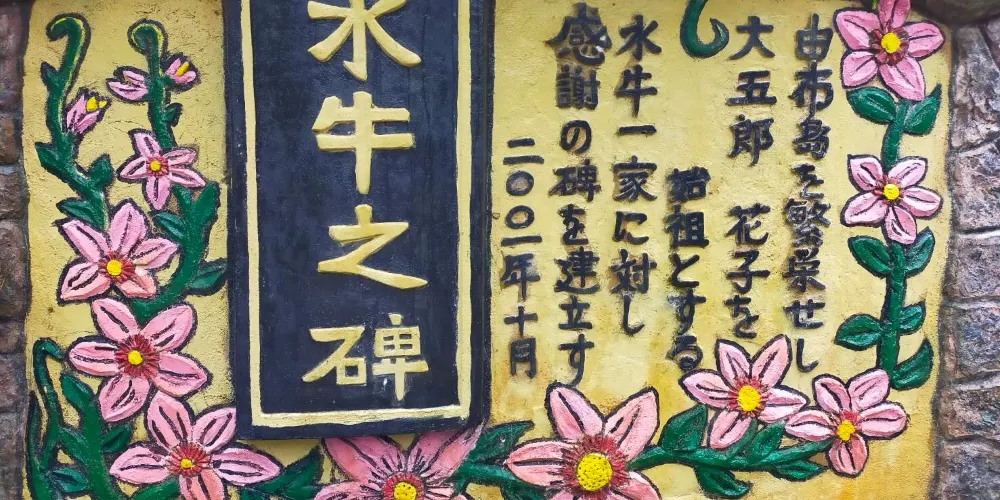 由布島を繁栄せし
大五郎 花子を
始祖とする
水牛一家に対し
感謝の碑を建立す
二〇〇一年十月
水牛之碑